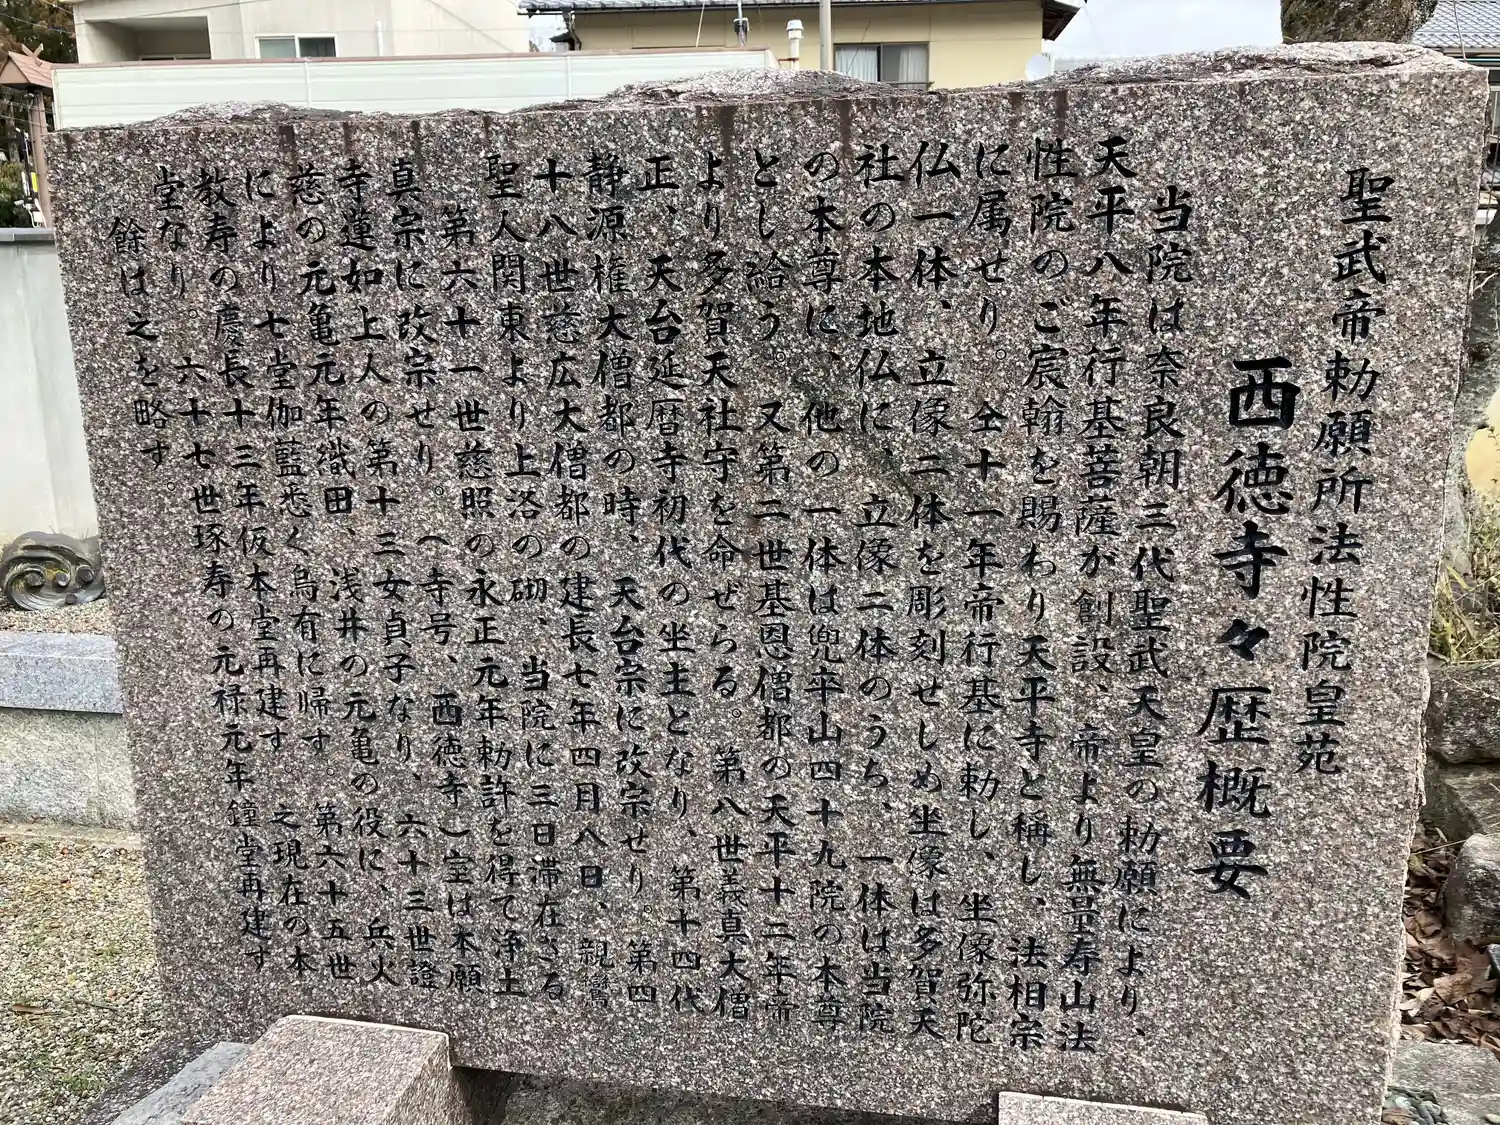 聖武帝勅願所法性院皇苑
西徳寺々歴概要
当院は奈良朝三代聖武天皇の勅願により、
天平八年行基菩薩が創設、帝より無量寿山法
性院のご宸翰を賜わり天平寺と稱し、法相宗
に属せり。仝十一年帝行基に勅し、坐像弥陀
仏一体、立像二体を彫刻せしめ坐像は多賀天
社の本地仏に、立像二体のうち、一体は当院
の本尊に、他の一体は兜卒山四十九院の本尊
とし給う。又第二世基恩僧都の天平十二年帝
より多賀天社守を命ぜらる。第八世義真大僧
正、天台延暦寺初代の坐主となり、第十四代
静源権大僧都の時、天台宗に改宗せり。第四
十八世慈広大僧都の建長七年四月八日、親鸞
聖人関東より上洛の砌、当院に三日滞在さる
第六十一世慈照の永正元年勅許を得て浄土
真宗に改宗せり。（寺号、西徳寺）室は本願
寺蓮如上人の第十三女貞子なり、六十三世證
慈の元亀元年織田、浅井の元亀の役に、兵火
により七堂伽藍悉く烏有に帰す。第六十五世
教寿の慶長十三年仮本堂再建す。之現在の本
堂なり。六十七世琢寿の元禄元年鐘堂再建す
餘は之を略す。